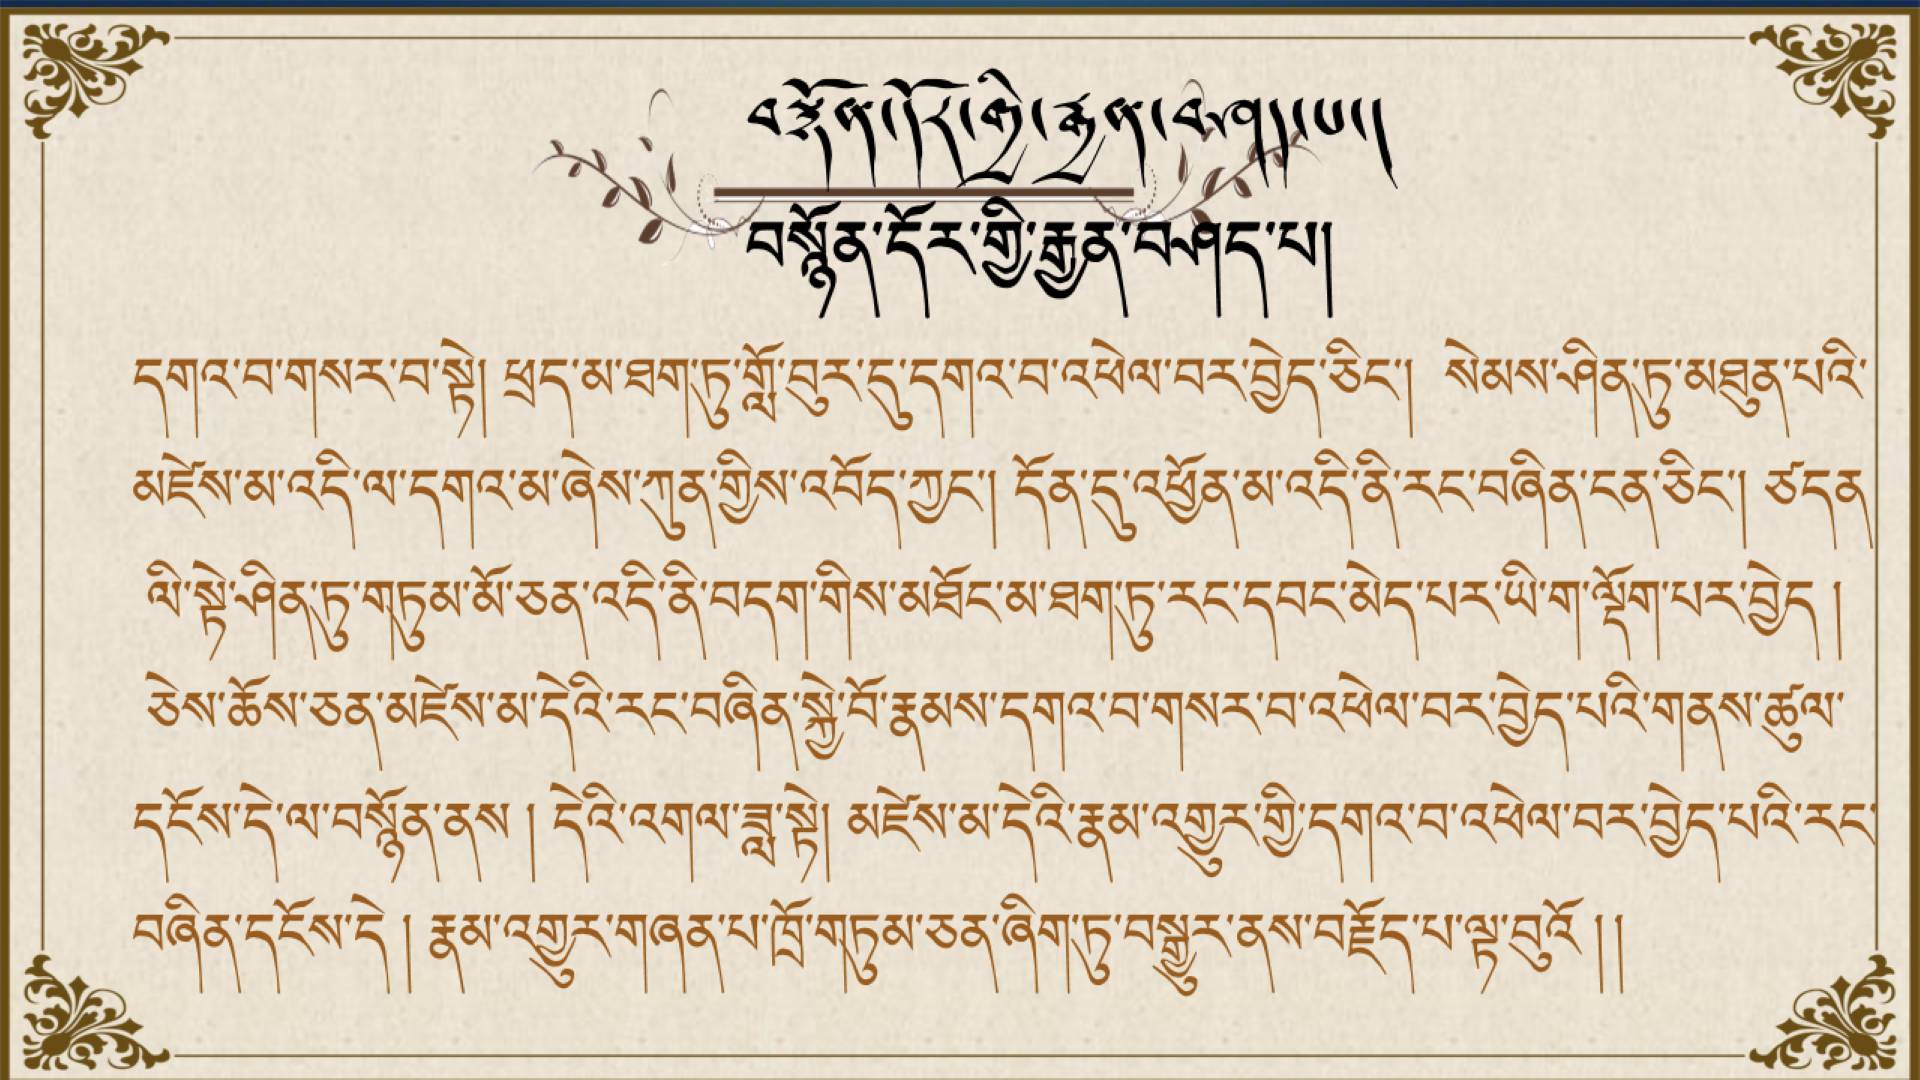 བསྙོན་དོར་གྱི་རྒྱན་བཤད་པ།
བསྙོན་དོར་གྱི་རྒྱན་བཤད་པ།
དགའ་བ་གསར་བ་སྟེ། ཕྲད་མ་ཐག་ཏུ་གློ་བུར་དུ་དགའ་བ་འཕེལ་བར་བྱེད་ཅིང་། སེམས་ཤིན་ཏུ་མཐུན་པའི་
མཛེས་མ་འདི་ལ་དགའ་མ་ཞེས་ཀུན་གྱིས་འབོད་ཀྱང་། དོན་དུ་འཕྱོན་མ་འདི་ནི་རང་བཞིན་ངན་ཅིང་། ཙདན
ལི་སྟེ་ཤིན་ཏུ་གཏུམ་མོ་ཅན་འདི་ནི་བདག་གིས་མཐོང་མ་ཐག་ཏུ་རང་དབང་མེད་པར་ཡི་ག་ལྡོག་པར་བྱེད །
ཅེས་ཆོས་ཅན་མཛེས་མ་དེའི་རང་བཞིན་སྐྱེ་བོ་རྣམས་དགའ་བ་གསར་བ་འཕེལ་བར་བྱེད་པའི་གནས་ཚུལ་
དངོས་དེ་ལ་བསྙོན་ནས ། དེའི་འགལ་ཟླ་སྟེ། མཛེས་མ་དེའི་རྣམ་འགྱུར་གྱི་དགའ་བ་འཕེལ་བར་བྱེད་པའི་རང་
བཞིན་དངོས་དེ ། རྣམ་འགྱུར་གཞན་པ་ཁྲོ་གཏུམ་ཅན་ཞིག་ཏུ་བསྒྱུར་ནས་བརྗོད་པ་ལྟ་བུའོ །།